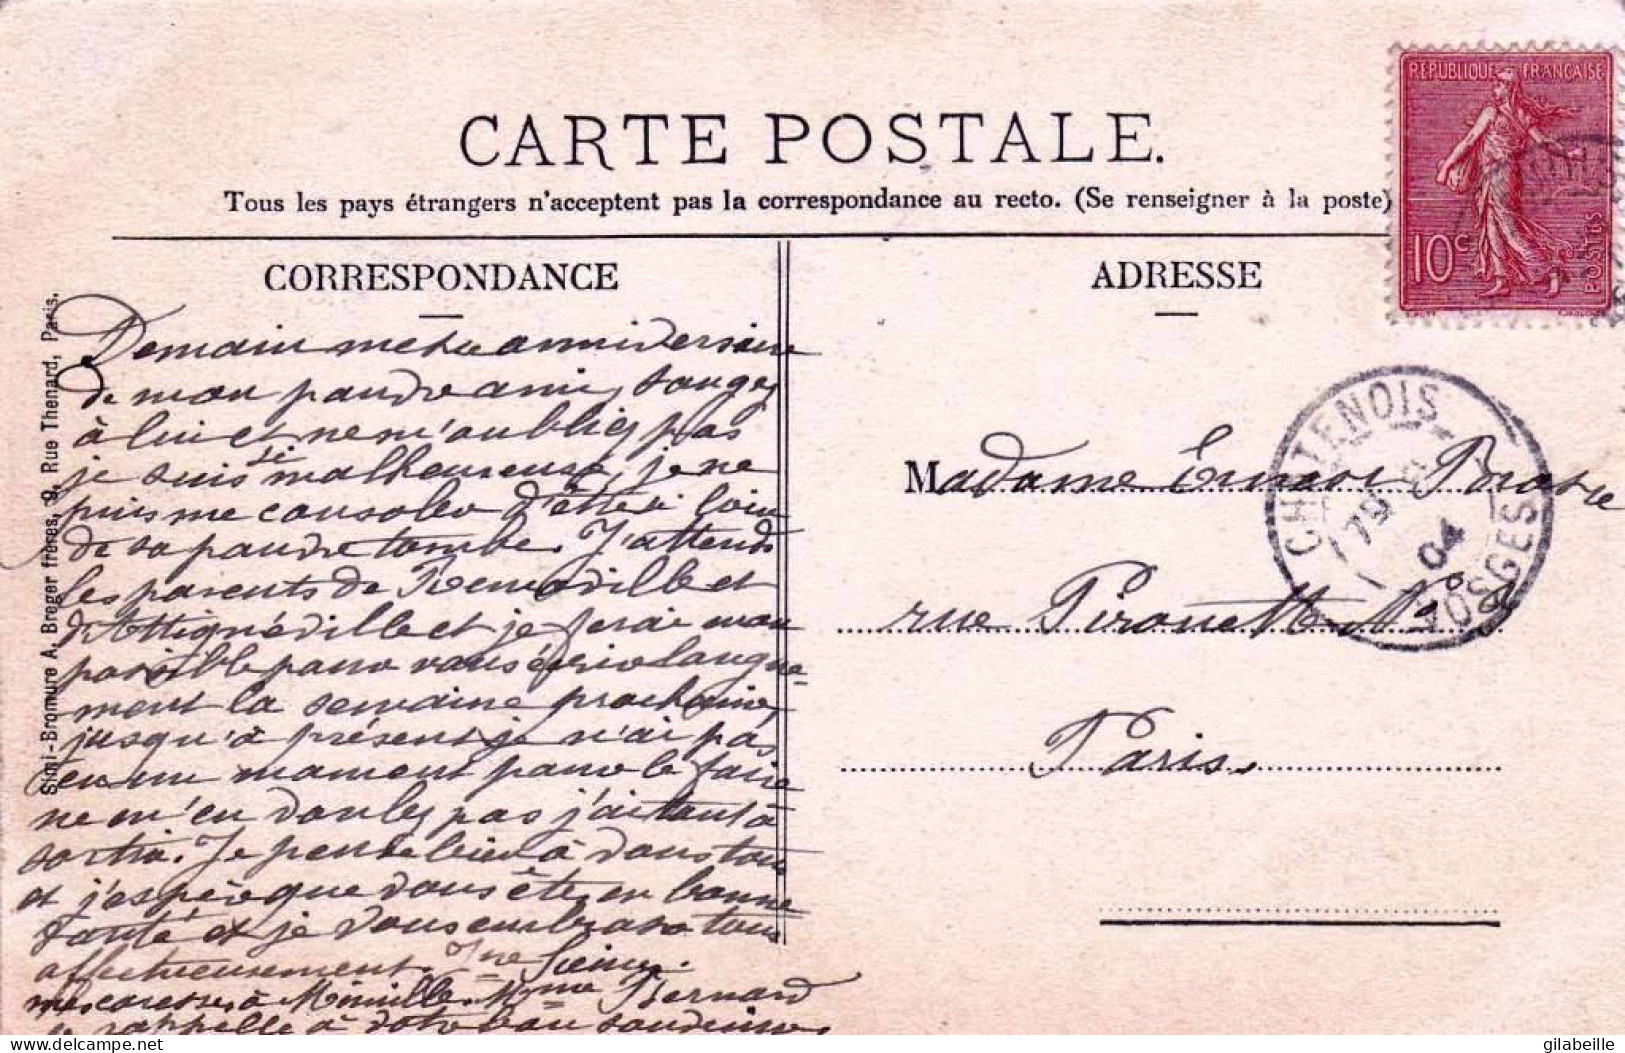 CARTE POSTALE.
Tous les pays étrangers n'acceptent pas la correspondance au recto. (Se renseigner à la poste)
REPUBLIQUE FRANCAISE
10c
POSTES
CORRESPONDANCE
Demain messe anniversaire
de mon pauvre ami, songez
à lui et ne m'oubliez pas
je suis si malheureuse, je ne
puis me consoler d'être si loin
de sa pauvre tombe. J'attends
les parents de Removille et
d'Attignéville et je ferai mon
possible pour vous écrire longue=
ment la semaine prochaine,
jusqu'à présent je n'ai pas
eu un moment pour le faire
ne m'en voulez pas j'ai tant à
sortir. Je pense bien à vous tous
et j'espère que vous êtes en bonne
santé et je vous embrasse tous
affectueusement. Vve
mes caresses à Mimille. Mme Bernard
se rappelle à votre bon souvenir
ADRESSE
Madame Ernest
rue Pirouette No
Paris.
CHATENOIS
04
VOSGES
Simi-Bromure A. Breger frères, 9, Rue Thenard, Paris.
delcampe.net
gilabeille